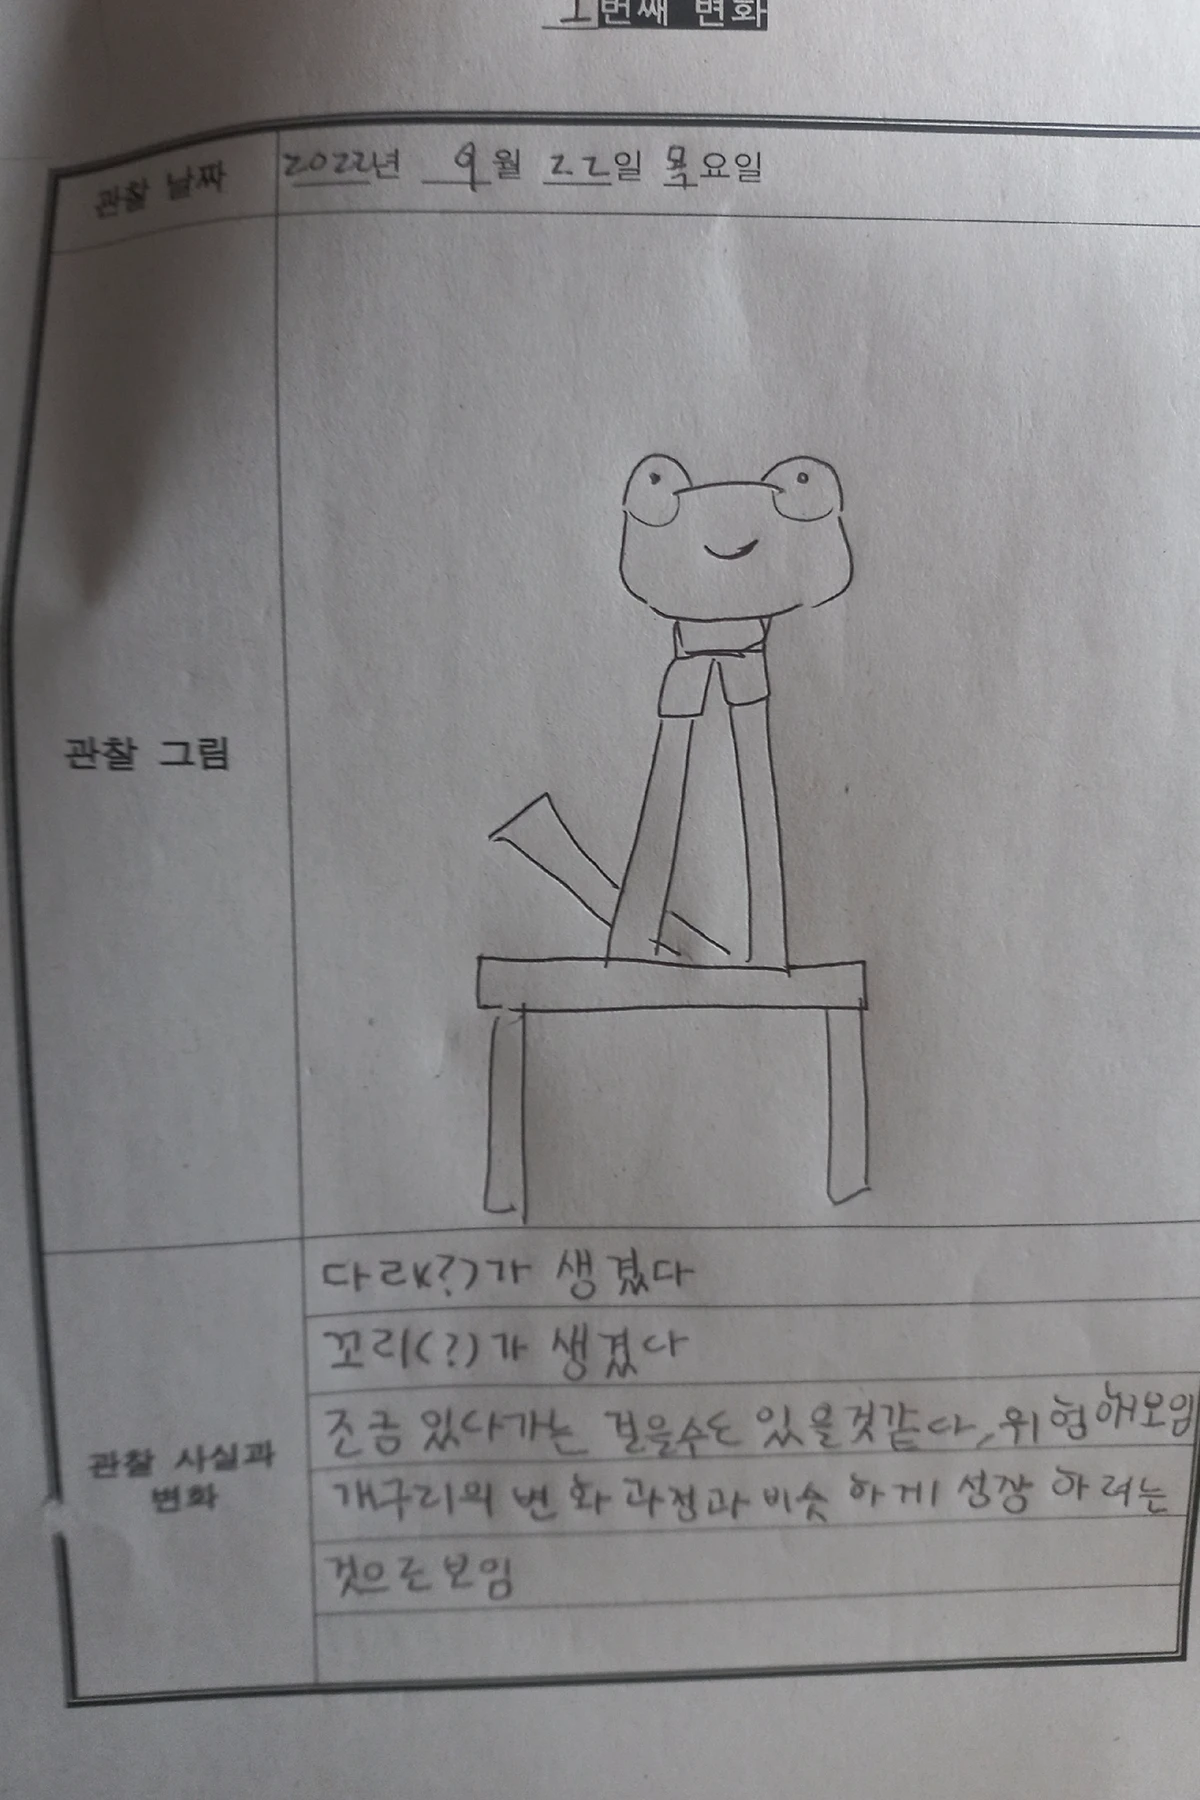 1번째 변화
관찰 날짜 2022년 9월 22일 목요일
관찰 그림
다리(?)가 생겼다
꼬리(?)가 생겼다
조금 있다가는 걸을수도 있을것같다, 위험해보임
관찰 사실과
변화
개구리의 변화과정과 비슷하게 성장 하려는
것으로 보임